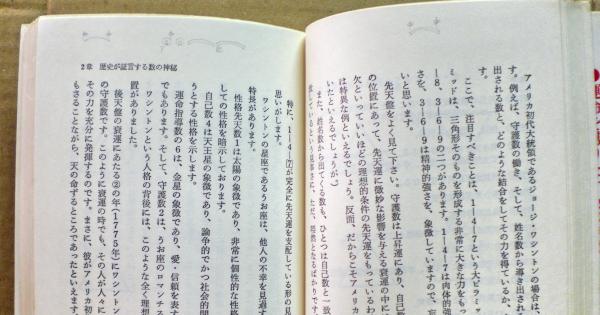 アメリカ初代大統領であるジョージ・ワシントンの場合は、
す。例えば、守護数の働き、そして、姓名数から導き出され
出される数と、どのような結合をしてその力を得ているか、
ここで、注目すべきことは、1―4―7という大ピラミ
ミッドは、三角形そのものを形成する非常に大きな力をも
―8、3―6―9の二つがあります。1―4―7は肉体的強
さを、3―6―9は精神的強さを、象徴していますので、
いと思います。
先天盤をよく見て下さい。守護数は上昇運にあり、自己
の位置にあって、先天運に微妙な影響を与える衰運の中に
欠といっていいほどの理想的条件の先天運をもっているわ
は特異な例といえるでしょう。反面、だからこそアメリカ
いたといえるでしょうが。)
また、姓名数から出てくる数も、ひとつは自己数と一致
2章 歴史が証言する数の神秘
特に、1―4―⑦が完全に先天運を支配している形の見
思いがします。
ワシントンの星座であるうお座は、他人の不幸を見過す
特長があります。
性格先天数1は太陽の象徴であり、非常に個性的な性格
しての性格を暗示しております。
自己数4は天王星の象徴であり、論争的でかつ社会的問
うとする性格を示します。
運命指導数の6は、金星の象徴であり、愛・信頼を表す
でもあります。そして、守護数2は、うお座のロマンチス
ワシントンという人格の背後には、このような全く理想
置がありました。
後天盤の衰運にあたる②の年(1775年)にワシントン
の守護数です。このように衰運の時でも、その人が人々に
その力を充分に発揮するのです。まさに、彼がアメリカ初
もさることながら、天の命ずるところであったといえます。